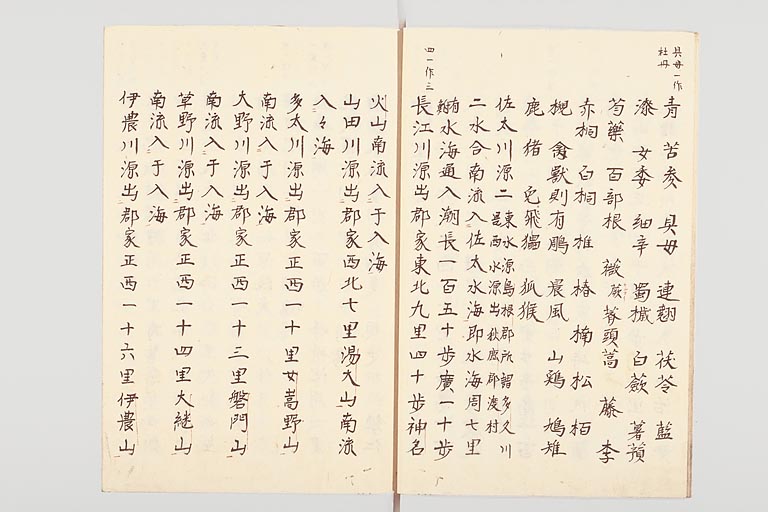 貝母一作
牡丹
青 苦参 貝母 連翹 茯苓 藍
漆 女委 細辛 蜀椒 白蘞 薯蕷
芍藥 百部根 薇蕨 薺頭蒿 藤 李
赤桐 白桐 椎 椿 楠 松 栢
槻 禽獸則有鵰 晨風 山鷄 鳩 雉
鹿 猪 兎 飛猵 狐 猴
佐太川源二 東水源島根郡所謂多久川
是西水源出秋鹿郡渡村
二水合南流入佐太水海即水海周七里
四一作三
鮒水海通入潮長一百五十歩廣一十歩
長江川源出郡家東北九里四十歩神名
火山南流入于入海
山田川源出郡家西北七里湯大山南流
入々海
多太川源出郡家正西一十里女嵩野山
南流入于入海
大野川源出郡家正西一十三里磐門山
南流入于入海
草野川源出郡家正西一十四里大継山
南流入于入海
伊農川源出郡家正西一十六里伊農山